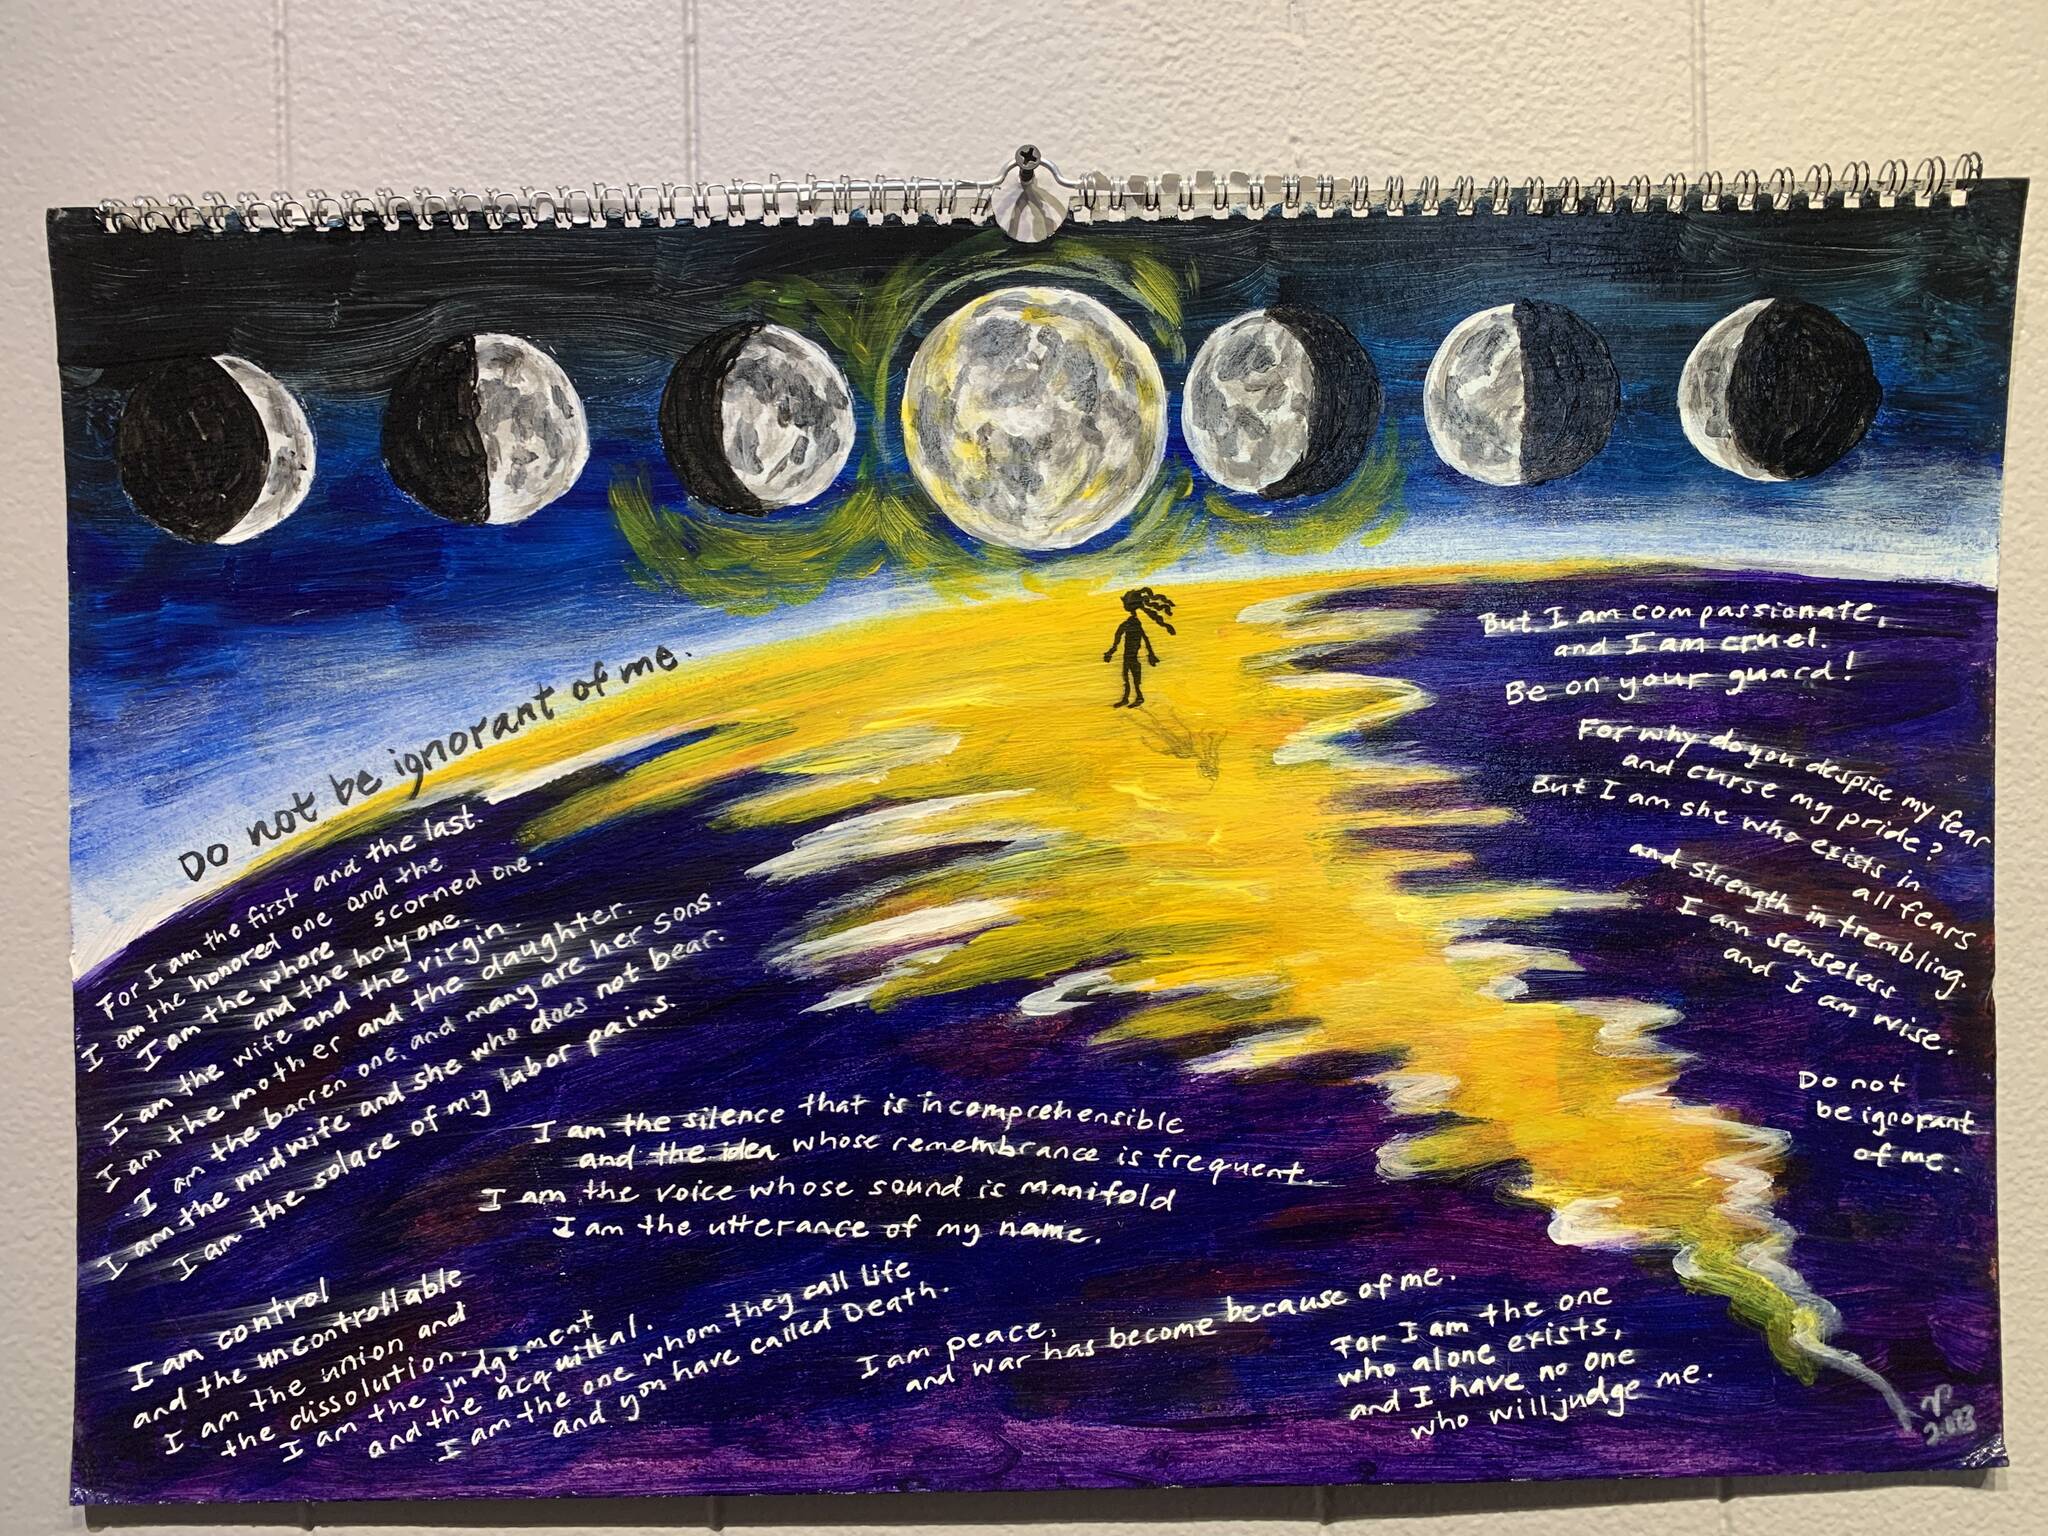 Do not be ignorant of me.
For I am the first and the last.
I am the honored one and the
scorned one.
I am the whore
and the holy one.
I am the wife and the virgin.
I am the mother and the daughter.
I am the barren one, and many are her sons.
I am the midwife and she who does not bear.
I am the solace of my labor pains.
I am the silence that is incomprehensible
and the idea whose remembrance is frequent.
I am the voice whose sound is manifold
I am the utterance of my name.
I am control
and the uncontrollable
I am the union and
the dissolution.
I am the judgement
and the acquittal.
I am the one whom they call Life
and you have called Death.
I am peace,
and war has become because of me.
For I am the one
who alone exists,
and I have no one
who will judge me.
But I am compassionate,
and I am cruel.
Be on your guard!
For why do you despise my fear
and curse my pride?
But I am she who exists in
all fears
and strength in trembling.
I am senseless
and I am wise.
Do not
be ignorant
of me.
2023